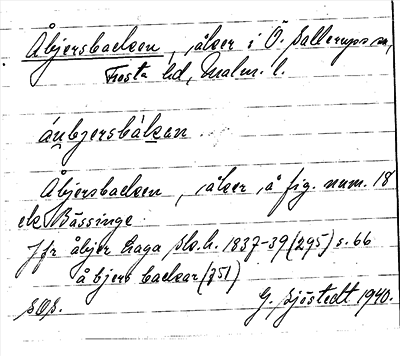 Åbjersbacken, åker i Ö. Sallerups sn,
Frosta hd, Malm. l.
áu̯bjersbàkan
Åbjersbacken, åker å fig. num. 18
Bässinge.
Jfr åbjer haga Sko.h. 1837-39 (295) s. 66
åbjers backar (751)
G. Sjöstedt 1940.